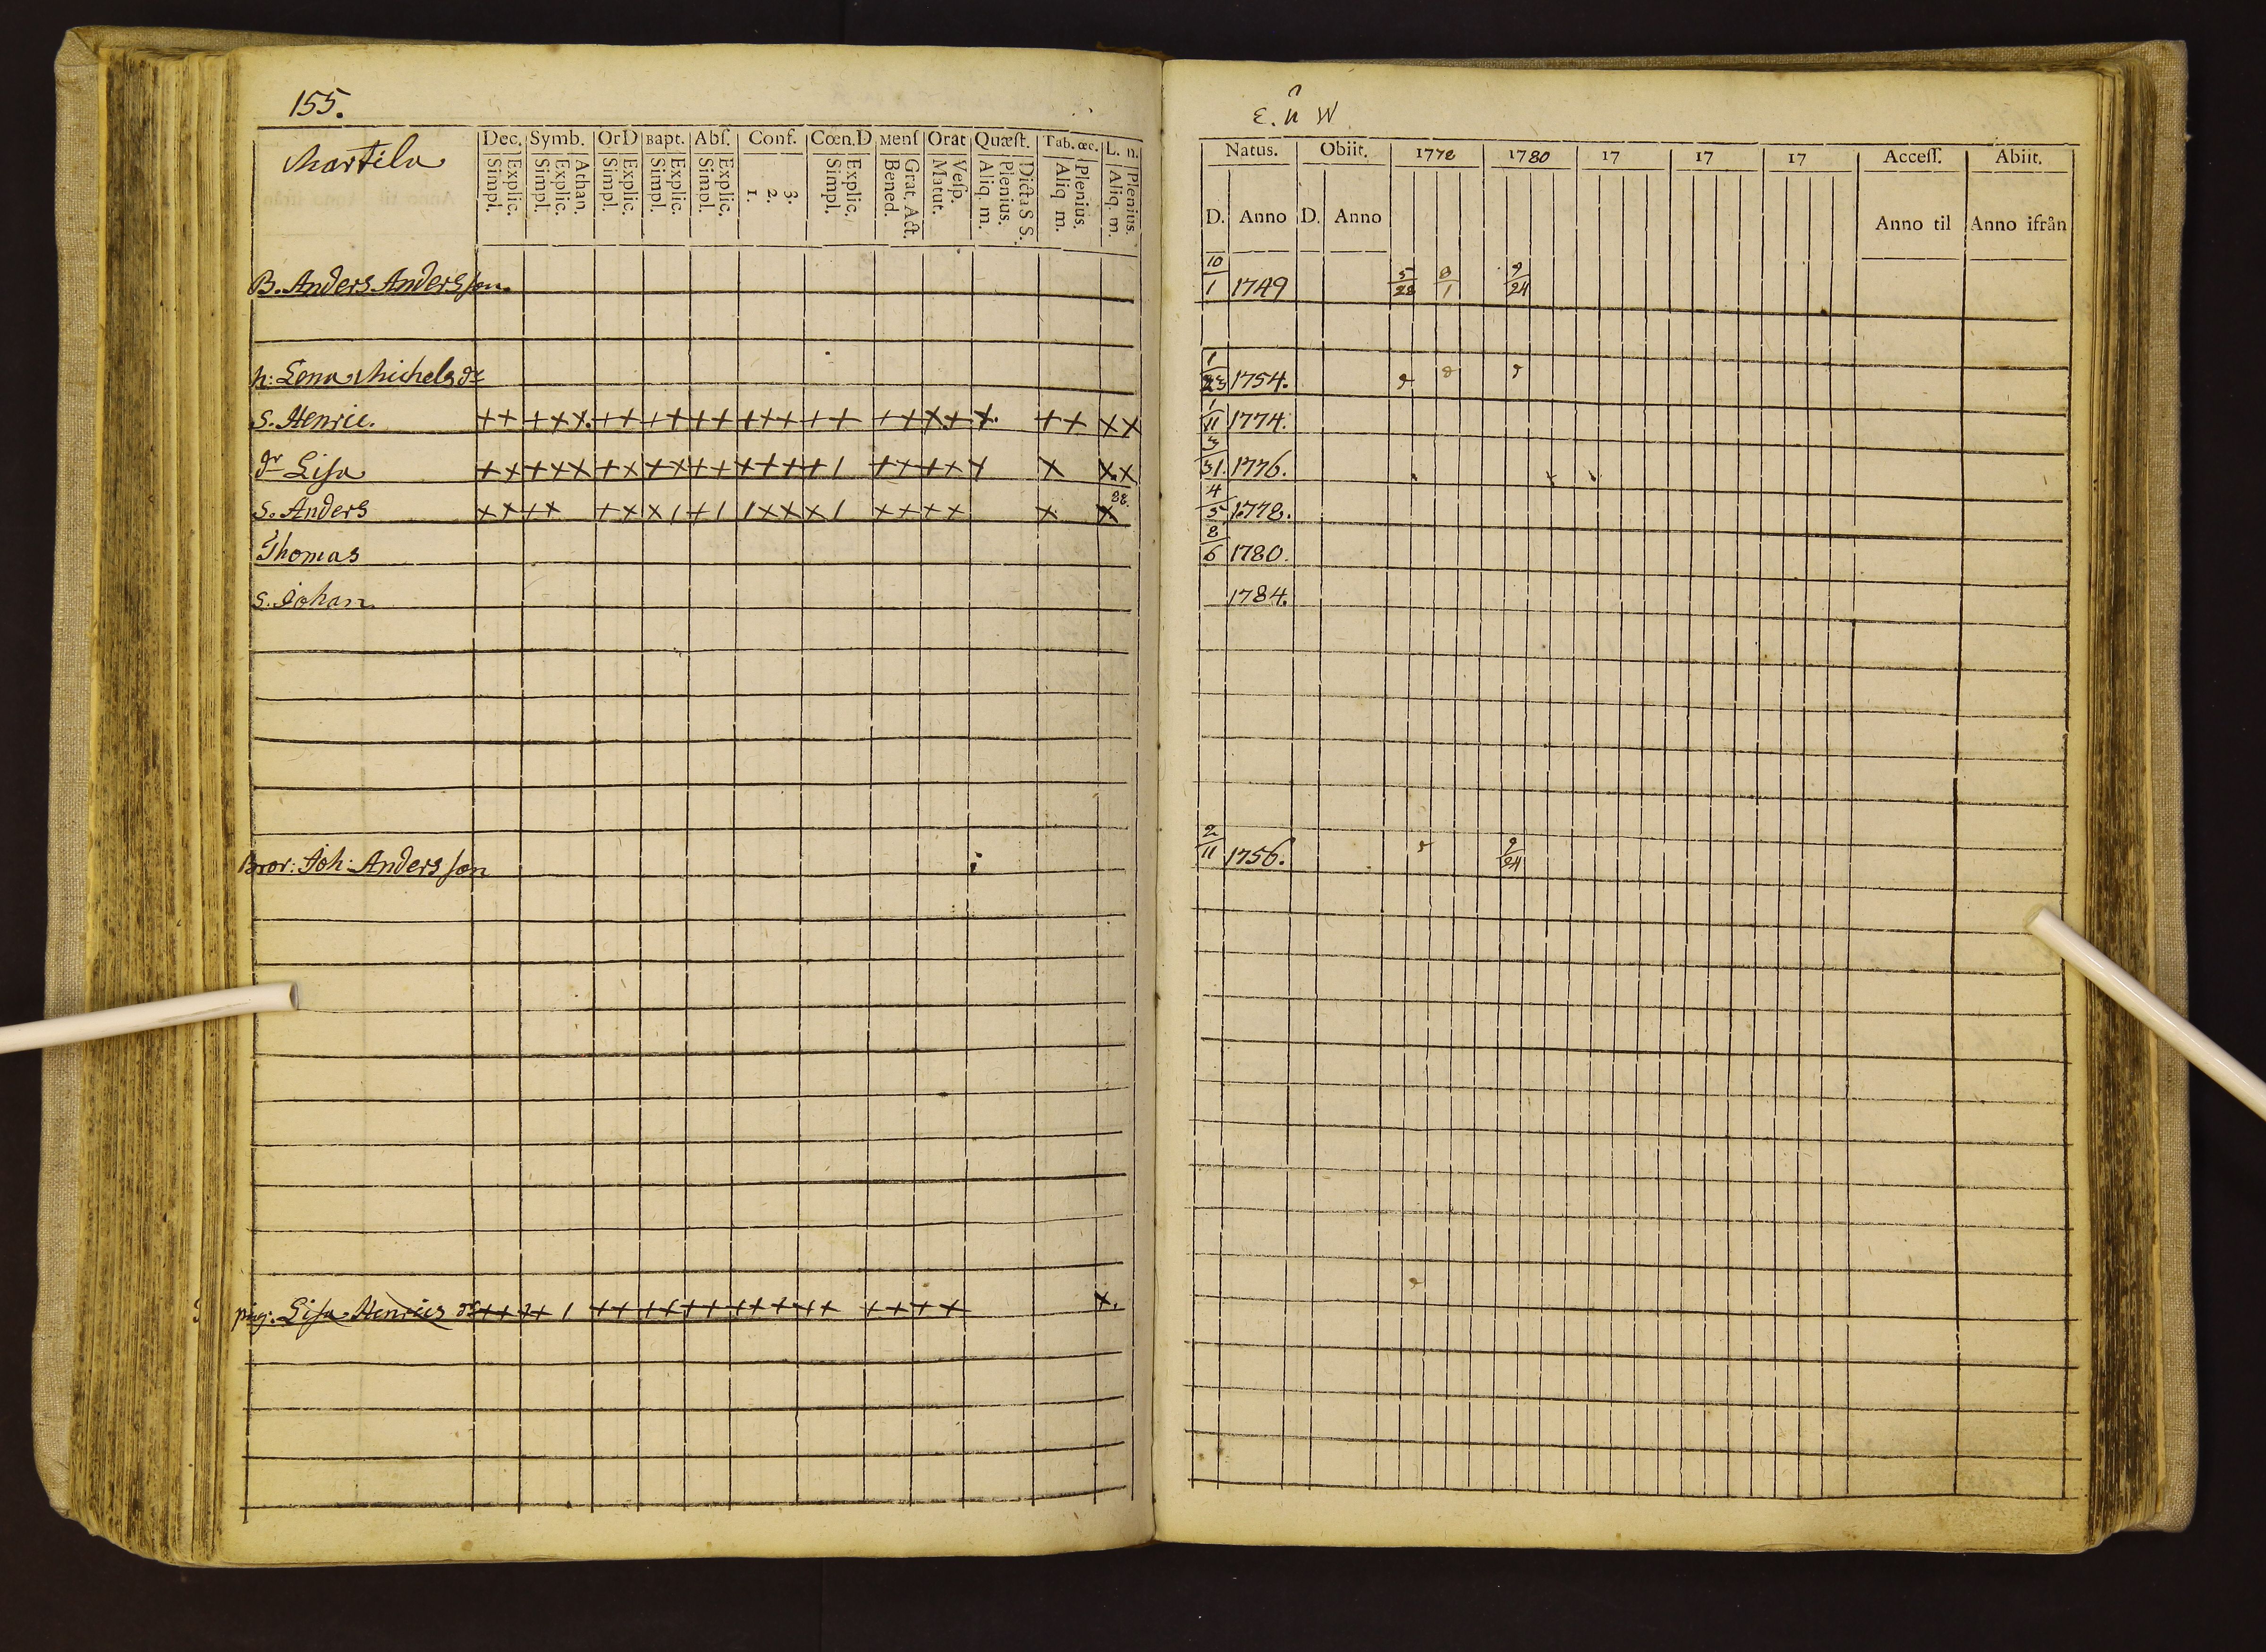 155.
Martila
Dec. Symb. Or D Bapt. Abſ. Conf. Cœn. D Menſ Orat Quæſt. Tab. œc. L. n.
Simpl. Explic. Simpl. Explic. Athan. Simpl. Explic. Simpl. Explic. Simpl. Explic. 1. 2. 3. Simpl. Explic. Bened. Grat. Act. Matut. Veſp. Aliq. m. Plenius. Dicta S S. Aliq m. Plenius. Aliq. m. Plenius.
B. Anders Andersſon.
h: Lena Michelsdr
S. Henric. ++ +++. ++ ++ ++ +++ ++ ++ ++ + ++ ++
dr Liſa ++ +++ ++ ++ ++ +++ +1 ++ ++ + + ++
S. Anders ++ ++ ++ +1 +1 1++ +1 ++ ++ + + 88.
Thomas
S. Johan
Bror: Joh: Andersſon
pig: Liſa Henricsdr ++ ++ 1 ++ ++ ++ +++ ++ ++ ++ +.
E. n W
Natus. Obiit. 1778 1780 17 17 17 Acceſſ. Abiit.
D. Anno D. Anno Anno til Anno ifrån
10/1 1749 5/28 8/1 9/24
1/23 1754.
1/11 1774.
3/31. 1776.
4/5 1778.
8/6 1780.
1784.
2/11 1756. 9/24